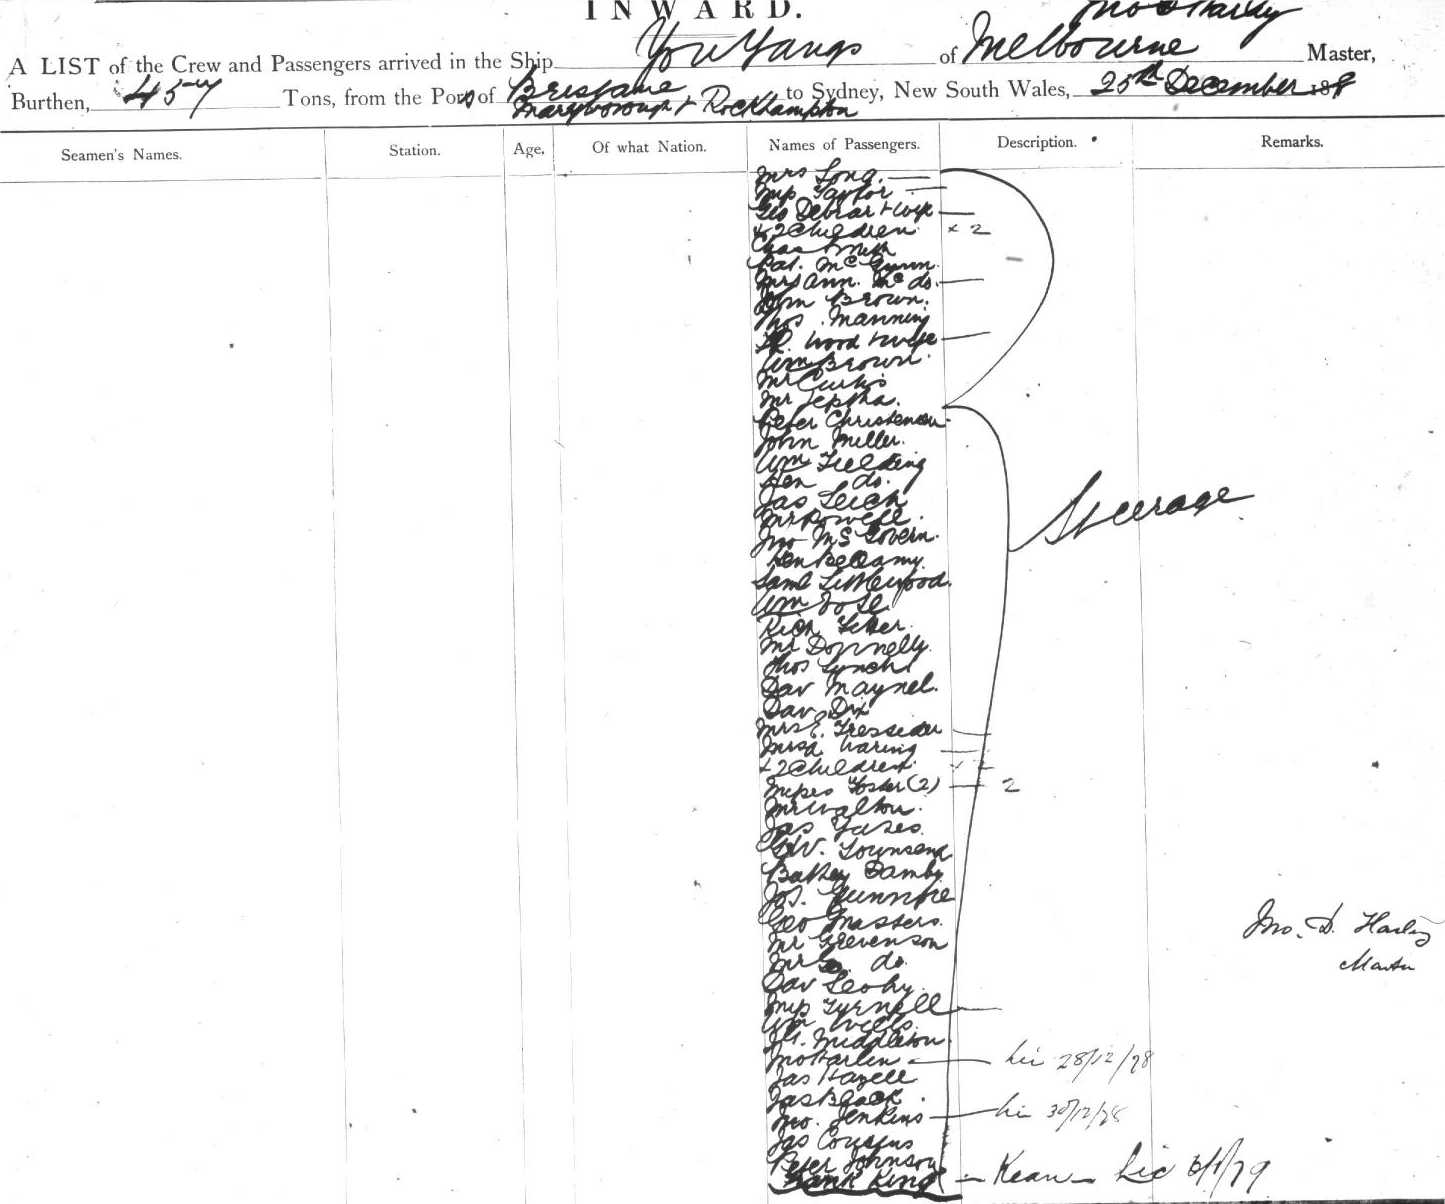 INWARD.
A LIST of the Crew and Passengers arrived in the Ship You Yangs of Melbourne Master,
Burthen, 457 Tons, from the Port of Brisbane to Sydney, New South Wales, 25th December 188
Maryborough + Rockhampton
Seamen's Names. Station. Age, Of what Nation. Names of Passengers. Description. Remarks.
Mrs Long.
Miss Taylor
Geo Debrar + wife
+ 2 Children × 2
Chas Smith
Pat. McGunn.
Mrs Ann. Mc do.
John Brown.
Thos. Manning
Wood + wife
Wm Brown.
Mr Curtis
Mr Jeptha.
Peter Christensen
John Miller.
Wm Fielding
Hen do.
Jas Leich
Mr Powell.
Jno McGovern.
Hen Bellamy.
Saml Littlewood.
Wm
Rich
Mr Donnelly.
Thos Lynch
Dav Maynel.
Dav Dix
Mrs E. Tresseder
Waring
+ 2 Children × 2
Misses Foster (2) 2
Mr Walton.
Jas Yates.
Townsend
Damby.
Jos.
Geo Masters.
Mr Stevenson
Mrs do.
Dav Leohy.
Miss Tyrnell
Wm Wells.
Middleton.
Jno Harlen Lic 28/12/78
Jas Hazell
Jas Black.
Jno. Jenkins Lic 30/12/78
Jas Cousens
Peter Johnson
Frank King Kean Lic 6/1/79
Steerage
Jno. D. Harley
Master